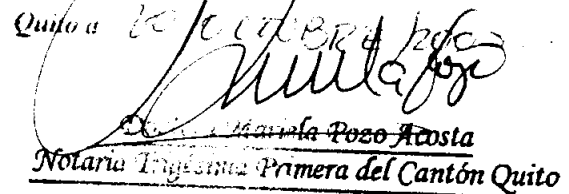 Quito a 20 OCTUBRE 2003
Mariela Pozo Acosta
Notaria Trigésima Primera del Cantón Quito